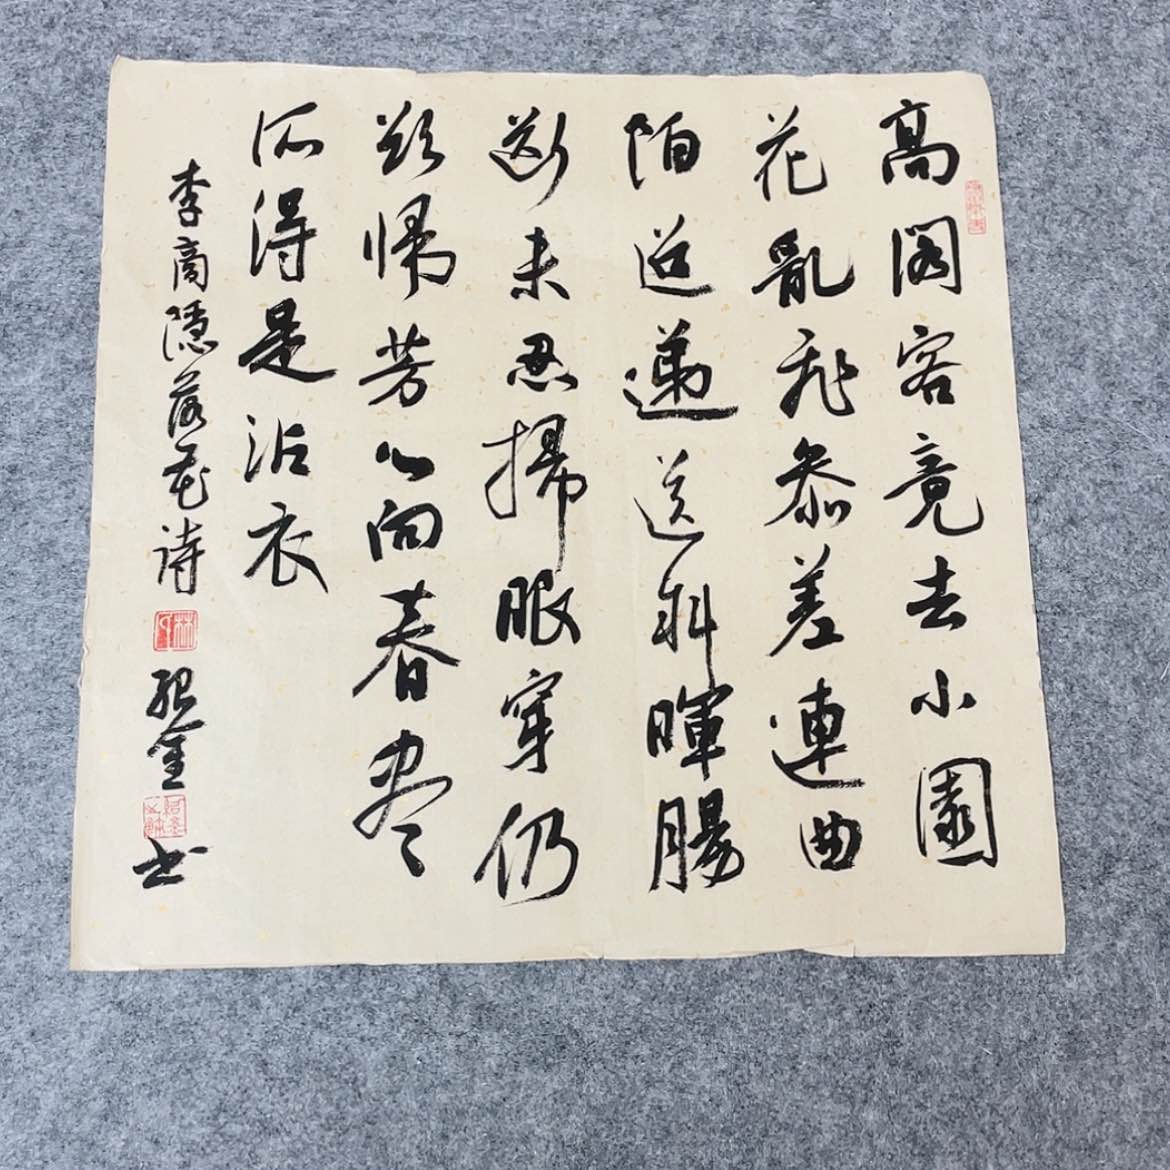 高閣客竟去小園
花亂飛參差連曲
陌迢遞送斜暉腸
斷未忍掃眼穿仍
欲歸芳心向春盡
所得是沾衣
李商隱落花詩
書